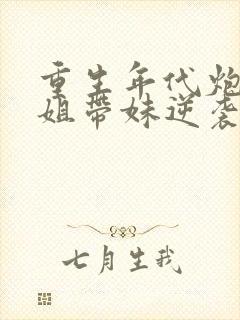 重生年代炮
姐带妹逆袭
七月生我